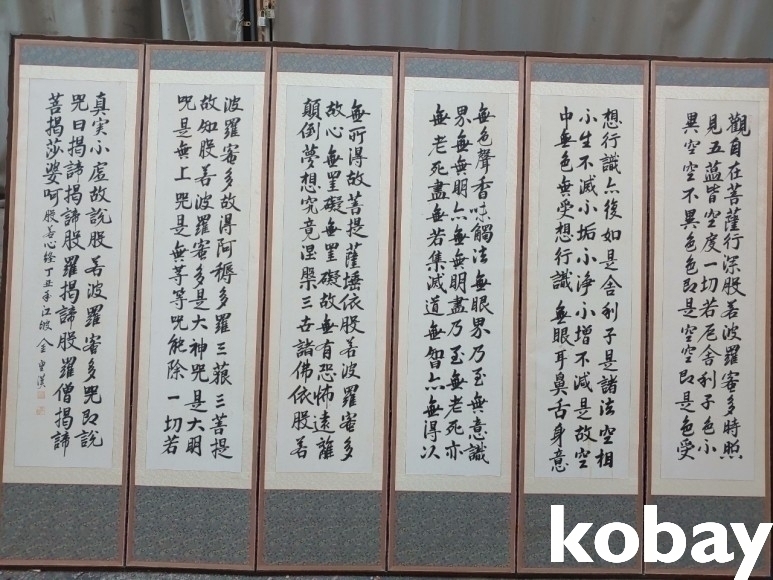 觀自在菩薩行深般若波羅蜜多時照
見五蘊皆空度一切苦厄舍利子色不
異空空不異色色即是空空即是色受
想行識亦復如是舍利子是諸法空相
不生不滅不垢不淨不增不減是故空
中無色無受想行識無眼耳鼻舌身意
無色聲香味觸法無眼界乃至無意識
界無無明亦無無明盡乃至無老死亦
無老死盡無苦集滅道無智亦無得以
無所得故菩提薩埵依般若波羅蜜多
故心無罣礙無罣礙故無有恐怖遠離
顛倒夢想究竟涅槃三世諸佛依般若
波羅蜜多故得阿耨多羅三藐三菩提
故知般若波羅蜜多是大神咒是大明
咒是無上咒是無等等咒能除一切苦
真実不虛故說般若波羅蜜多咒即說
咒曰揭諦揭諦般羅揭諦般羅僧揭諦
菩揭莎婆呵 般若心経 丁丑年 江 金 漢
kobay